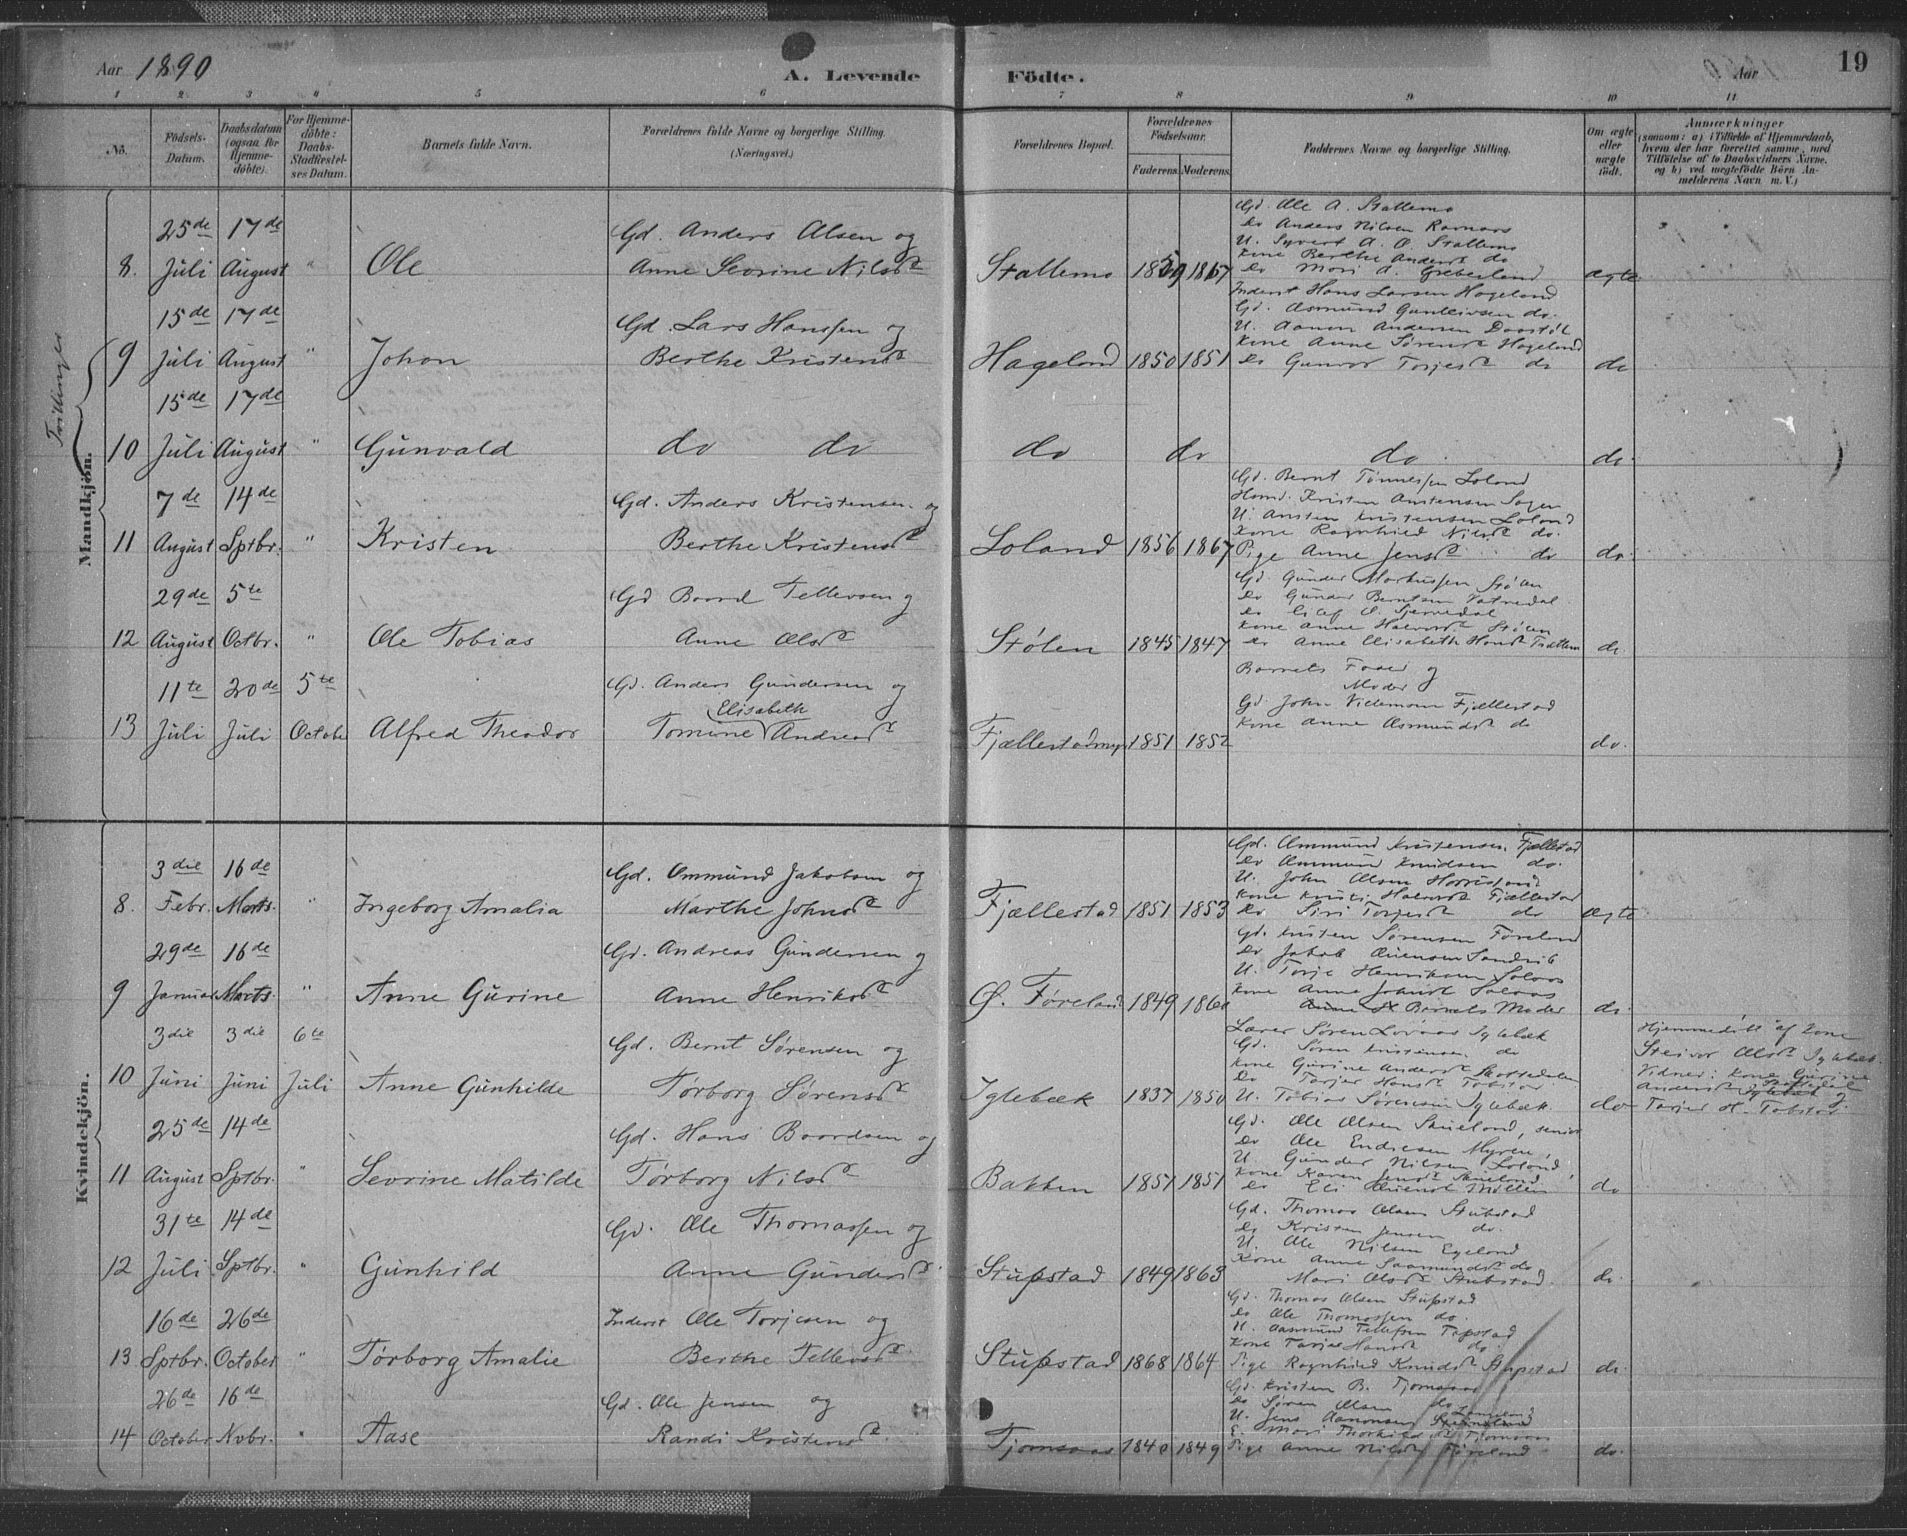 Aar 1890
A. Levende
Födte.
Aar
19
1 2 3 4 5 6 7 8 9 10 11
No.
Födsels-Datum.
Daabsdatum (ogsaa for Hjemmedöbte).
For Hjemmedöbte: Daabs-Stadfæstelses Datum.
Barnets fulde Navn.
Forældrenes fulde Navne og borgerlige Stilling. (Næringsvei.)
Forældrenes Bopæl.
Forældrenes Födselsaar.
Faderens. Moderens.
Faddernes Navne og borgerlige Stilling.
Om ægte eller uægte födt.
Anmærkninger
(saasom: a) i Tilfælde af Hjemmedaab, hvem der har forrettet samme, med Tilföielse af to Daabsvidners Navne, og b) ved uægtefödte Börn Anmelderens Navn m. V.)
Mandkjön.
Tvillinger
8. 25de Juli 17de August " Ole
Gd. Anders Olsen og
Anne Sevrine Nilsd
Stallemo 1859 1867
Gd. Ole A. Stallemo
do Anders Nilsen
U. Syvert A. O. Stallemo
Kone Berthe Andersd do
ægte
9 15de Juli 17de August " Johan
Gd. Lars Hanssen og
Berthe Kristensd
Hageland 1850 1851
Inderst Hans Larsen Hageland
Gd. Asmund Gunleivsen do.
U. Aanen Andersen
Kone Anne Sørensd Hageland
do Gunvor Torjesd do
do
10 15de Juli 17de August " Gunvald
do do
do do do do.
11 7de August 14de Sptbr. " Kristen
Gd. Anders Kristensen og
Berthe Kristensd
Loland 1856 1867
Gd. Bernt Tønnessen Loland
U. Ansten Kristensen Loland
Kone Ragnhild Nilsd do.
Pige Anne Jensd do
do.
12 29de August 5te Octbr. " Ole Tobias
Gd Baard Tellevsen og
Anne Olsd
Stølen 1845 1847
Gd. Gunder Markussen Stølen
do Gunder Berntsen Vatnedal
Kone Anne Halvorsd Stølen
do Anne Elisabeth
do
13 11te Juli 20de Juli 5te Octobr Alfred Theodor
Gd. Anders Gundersen og
Elisabeth
Tomine Andreasd
1851 1852
Barnets Fader og
Moder
Gd John Villemoen Fjællestad
Kone Anne Asmundsd do
do.
Kvindekjön.
8. 3die Febr. 16de Marts. " Ingeborg Amalia
Gd. Ommund Jakobsen og
Marthe Johnsd
Fjællestad 1851 1853
Gd. Ommund Kristensen Fjællestad
do Ommund Knudsen do.
U. John Olsen
do Siri Torjesd do
ægte
9 29de Januar 16de Marts. " Anne Gurine
Gd. Andreas Gundersen og
Anne Henriksd
Ø. Føreland 1849
Gd. Kristen Sørensen Føreland
do Jakob Sandvik
U. Torje Henriksen
Barnets Moder
do.
10 3die Juni 3die Juni 6te Juli Anne Gunhilde
Gd. Bernt Sørensen og
Tørborg Sørensd
Iglebæk 1837 1850
Lærer Søren Iglebæk
Gd. Søren Kristensen do
Kone Gurine Andersd
do Tarjer Hansd Tobstad
U. Tobias Sørensen Iglebæk
do
Hjemmedøbt af Kone
Steivor Olsd Iglebæk.
Vidner: Kone Gurine
Andersd
Tarjer H. Tobstad
11 25de August 14de Sptbr. " Sevrine Matilde
Gd. Hans Baardsen og
Tørborg Nilsd
Bakken 1851 1851
Gd. Ole Olsen Skueland, senior
do Ole Endresen Myren,
U. Gunder Nilsen Loland,
Kone Karen Jensd Skueland,
do
12 31te Juli 14de Sptbr. " Gunhild
Gd. Ole Thomassen og
Anne Gundersd
Stupstad 1849 1863
Gd. Thomas Olsen Stubstad
do Kristen Jensen do.
U. Ole Nilsen Egeland
Kone Anne Saamundsd do
Mari Olsd Stubstad.
do.
13 16de Sptbr. 26de October " Tørborg Amalie
Inderst Ole Torjesen og
Berthe Tellevsd
Stupstad 1868 1864
Gd. Thomas Olsen Stupstad
do Ole Thomassen do.
U. Aasmund Tellefsen Tapstad
Kone Tarjer Hansd do.
Pige Ragnhild Knudsd Stupstad
do.
14 26de October 16de Nvbr. " Aase
Gd. Ole Jensen og
Randi Kristensd
Tjomsaas 1849
Gd. Kristen B. Tjomsaas
do Søren Olsen do
U. Jens Aanonsen
Pige Anne Nilsd Føreland
do.